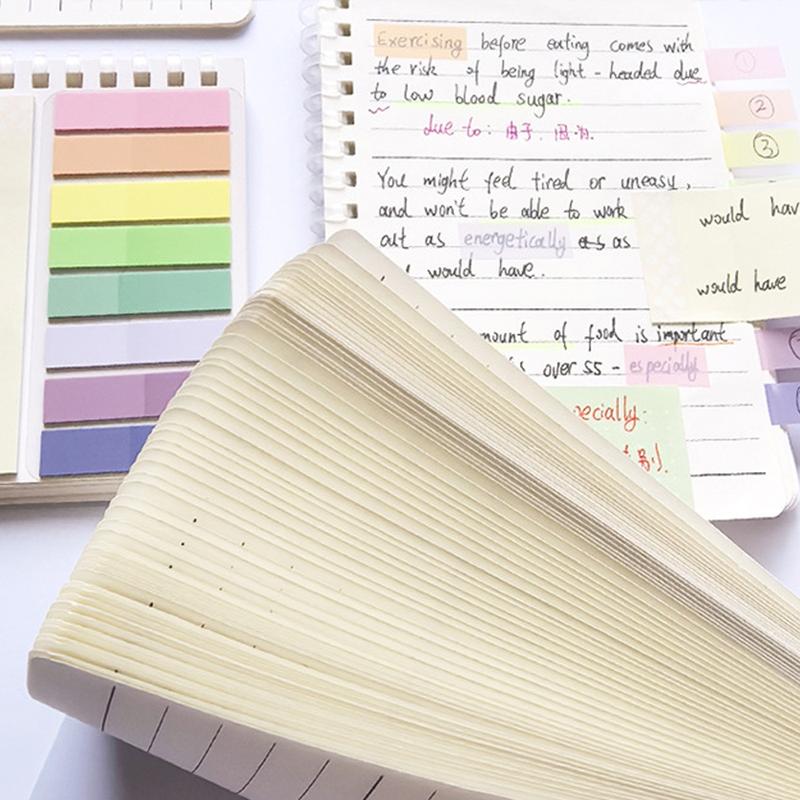 Exercising before eating comes with
the risk of being light-headed due
to low blood sugar.
due to: 由于. 因为.
You might feel tired or uneasy,
and won't be able to work
out as energetically as as
would have.
mount of food is important
over 55 - especially
ecially:
别).
①
②
③
would hav
would have